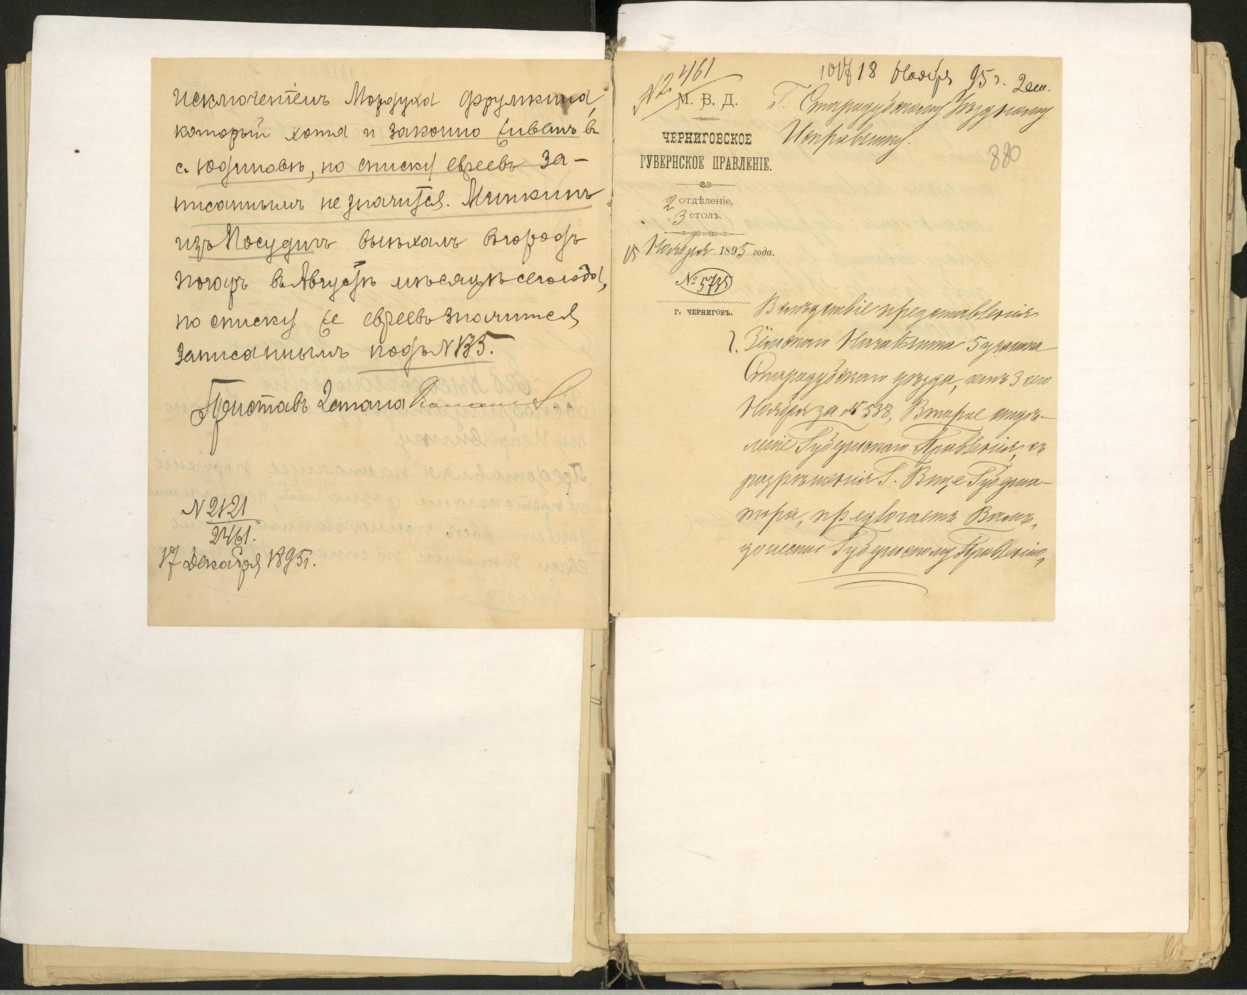 исключеніемъ Мордуха Фрумкина,
который хотя и законно живетъ въ
с. Юдиновѣ, но списку евреевъ за-
писаннымъ не значится. Миткинъ
изъ Посудичъ выѣхалъ въ городъ
Погаръ въ Августѣ мѣсяцѣ сего года,
по списку же евреевъ значится
записаннымъ подъ №135.
Приставъ 2 стана
№ 2121
2461.
17 Декабря 1895 г.
№ 2461
М. В. Д.
ЧЕРНИГОВСКОЕ
ГУБЕРНСКОЕ ПРАВЛЕНІЕ.
2 отдѣленіе,
3 столъ.
15 Ноября 1895 года.
№ 5735
г. ЧЕРНИГОВЪ.
18 Ноября 95 г. 2 ст.
Г. Стародубскому Уѣздному
Исправнику.
880
Вслѣдствіе представленія
г. Земскаго Начальника 5 участка
Стародубскаго уѣзда, отъ 3 сего
Ноября за № 538, Второе отдѣ-
леніе Губернскаго Правленія, съ
разрѣшенія Г. Вице Губерна-
тора, предлагаетъ Вамъ,
донести Губернскому Правленію,